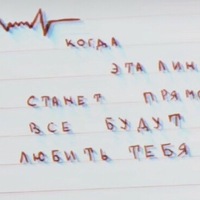 КОГДА
ЭТА ЛИН
СТАНЕТ ПРЯМО
ВСЕ БУДУТ
ЛЮБИТЬ ТЕБЯ